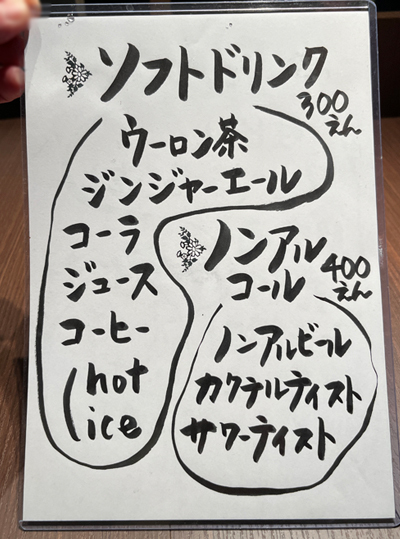 ソフトドリンク
300
えん
ウーロン茶
ジンジャーエール
コーラ
ジュース
コーヒー
(hot
ice
ノンアル
コール
400
えん
ノンアルビール
カクテルティスト
サワーティスト